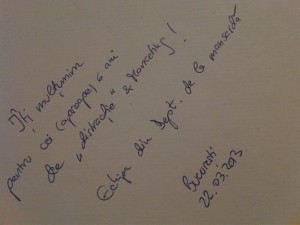 Îți mulțumim
pentru cei (aproape) 6 ani
de "distracție" & Marketing!
Echipa din Dept. de la mansardă
București
22.03.2013